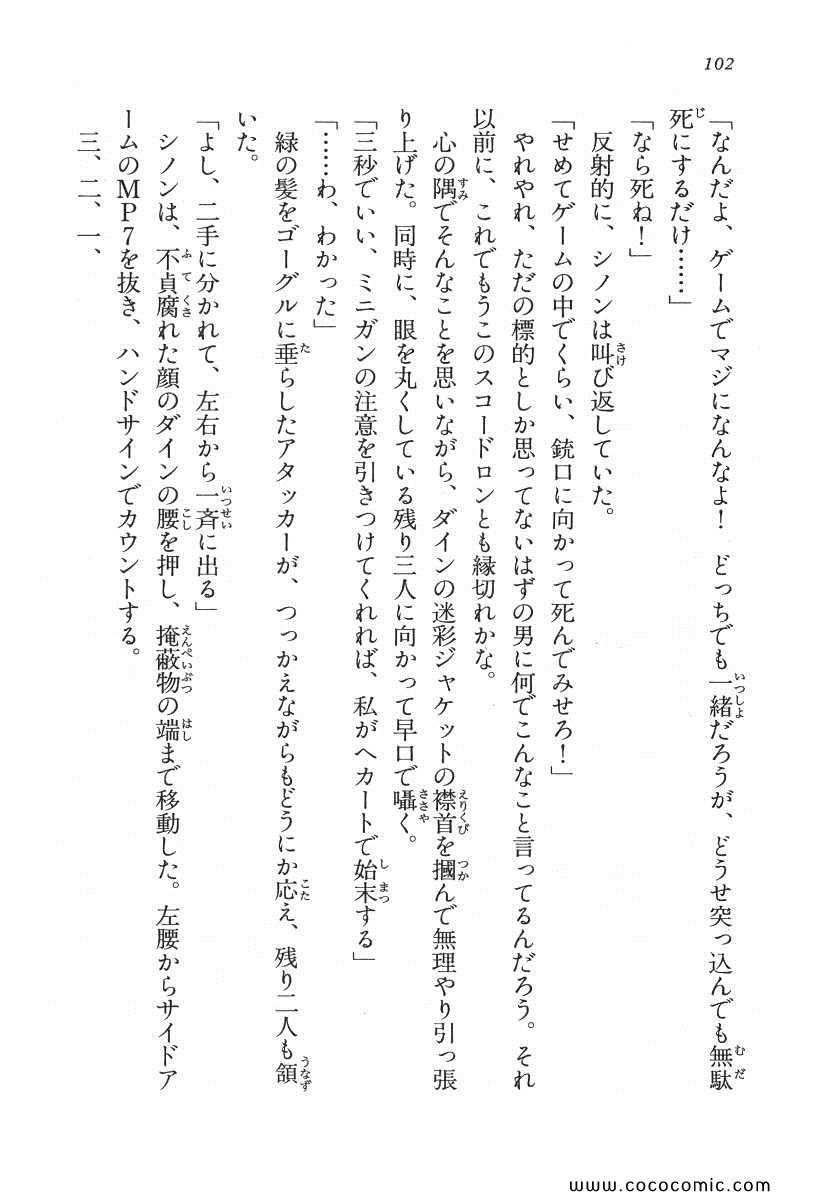 102
「なんだよ、ゲームでマジになんなよ！　どっちでも一緒だろうが、どうせ突っ込んでも無駄
死にするだけ……」
「なら死ね！」
反射的に、シノンは叫び返していた。
「せめてゲームの中でくらい、銃口に向かって死んでみせろ！」
やれやれ、ただの標的としか思ってないはずの男に何でこんなこと言ってるんだろう。それ
以前に、これでもうこのスコードロンとも縁切れかな。
心の隅でそんなことを思いながら、ダインの迷彩ジャケットの襟首を摑んで無理やり引っ張
り上げた。同時に、眼を丸くしている残り三人に向かって早口で囁く。
「三秒でいい、ミニガンの注意を引きつけてくれれば、私がヘカートで始末する」
「……わ、わかった」
緑の髪をゴーグルに垂らしたアタッカーが、つっかえながらもどうにか応え、残り二人も頷
いた。
「よし、二手に分かれて、左右から一斉に出る」
シノンは、不貞腐れた顔のダインの腰を押し、掩蔽物の端まで移動した。左腰からサイドア
ームのMP7を抜き、ハンドサインでカウントする。
三、二、一、
www.cococomic.com